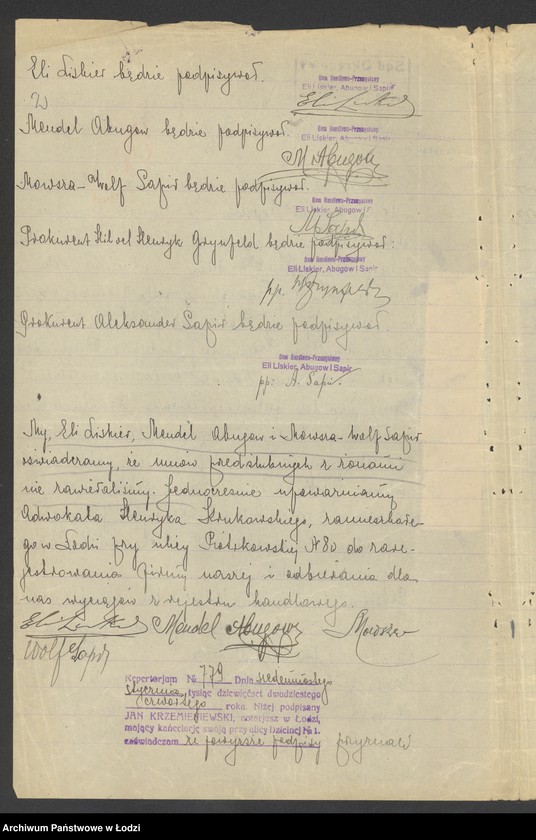 Eli Liskier będzie podpisywał.
Dom Handlowo-Przemysłowy
Eli Liskier, Abugow i Sapir
Mendel Abugow będzie podpisywał.
Dom Handlowo-Przemysłowy
Eli Liskier, Abugow i Sapir
M Abugow
Mowsza-Wolf Sapir będzie podpisywał.
Dom Handlowo-Przemysłowy
Eli Liskier, Abugow i S
Prokurent Hersz Henryk Grynfeld będzie podpisywał:
Dom Handlowo-Przemysłowy
Eli Liskier, Abugow i Sapir
pp. H Grynfeld
Prokurent Aleksander Sapir będzie podpisywał
Dom Handlowo-Przemysłowy
Eli Liskier, Abugow i Sapir
pp: A. Sapir.
My, Eli Liskier, Mendel Abugow i Mowsza-Wolf Sapir
oświadczamy, że umów przedślubnych z żonami
nie zawieraliśmy. Jednocześnie upoważniamy
Adwokata Henryka Krukowskiego, zamieszkałe-
go w Łodzi przy ulicy Piotrkowskiej N 80 do zare-
jestrowania firmy naszej i odbierania dla
nas wyciągów z rejestru handlowego.
Eli Liskier Mendel Abugow Mowsza
Wolf Sapir
Repertorjum № 779 Dnia siedemnastego
stycznia tysiąc dziewięćset dwudziestego
czwartego roku. Niżej podpisany
JAN KRZEMIENIEWSKI, notarjusz w Łodzi,
mający kancelarję swoją przy ulicy Dzielnej № 1.
zaświadczam że powyższe podpisy
Archiwum Państwowe w Łodzi